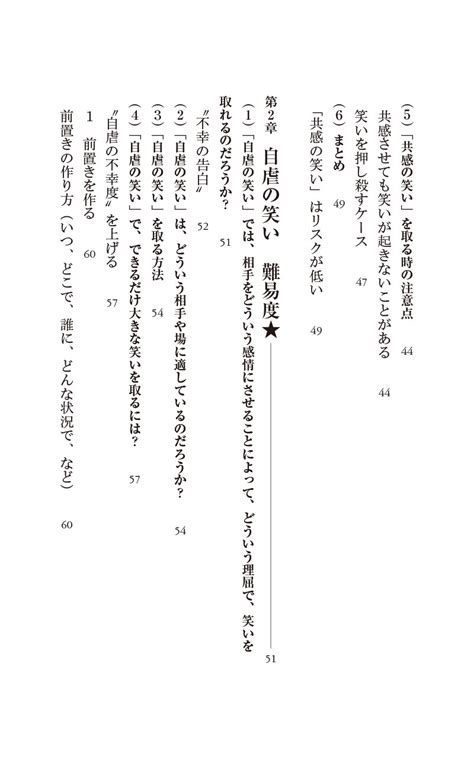 (5)「共感の笑い」を取る時の注意点 44
共感させても笑いが起きないことがある 44
笑いを押し殺すケース 47
(6) まとめ 49
「共感の笑い」はリスクが低い 49
第2章 自虐の笑い 難易度★ 51
(1)「自虐の笑い」では、相手をどういう感情にさせることによって、どういう理屈で、笑いを
取れるのだろうか? 51
〝不幸の告白〟 52
(2)「自虐の笑い」は、どういう相手や場に適しているのだろうか? 54
(3)「自虐の笑い」を取る方法 54
(4)「自虐の笑い」で、できるだけ大きな笑いを取るには? 57
〝自虐の不幸度〟を上げる 57
1 前置きを作る 60
前置きの作り方(いつ、どこで、誰に、どんな状況で、など) 60